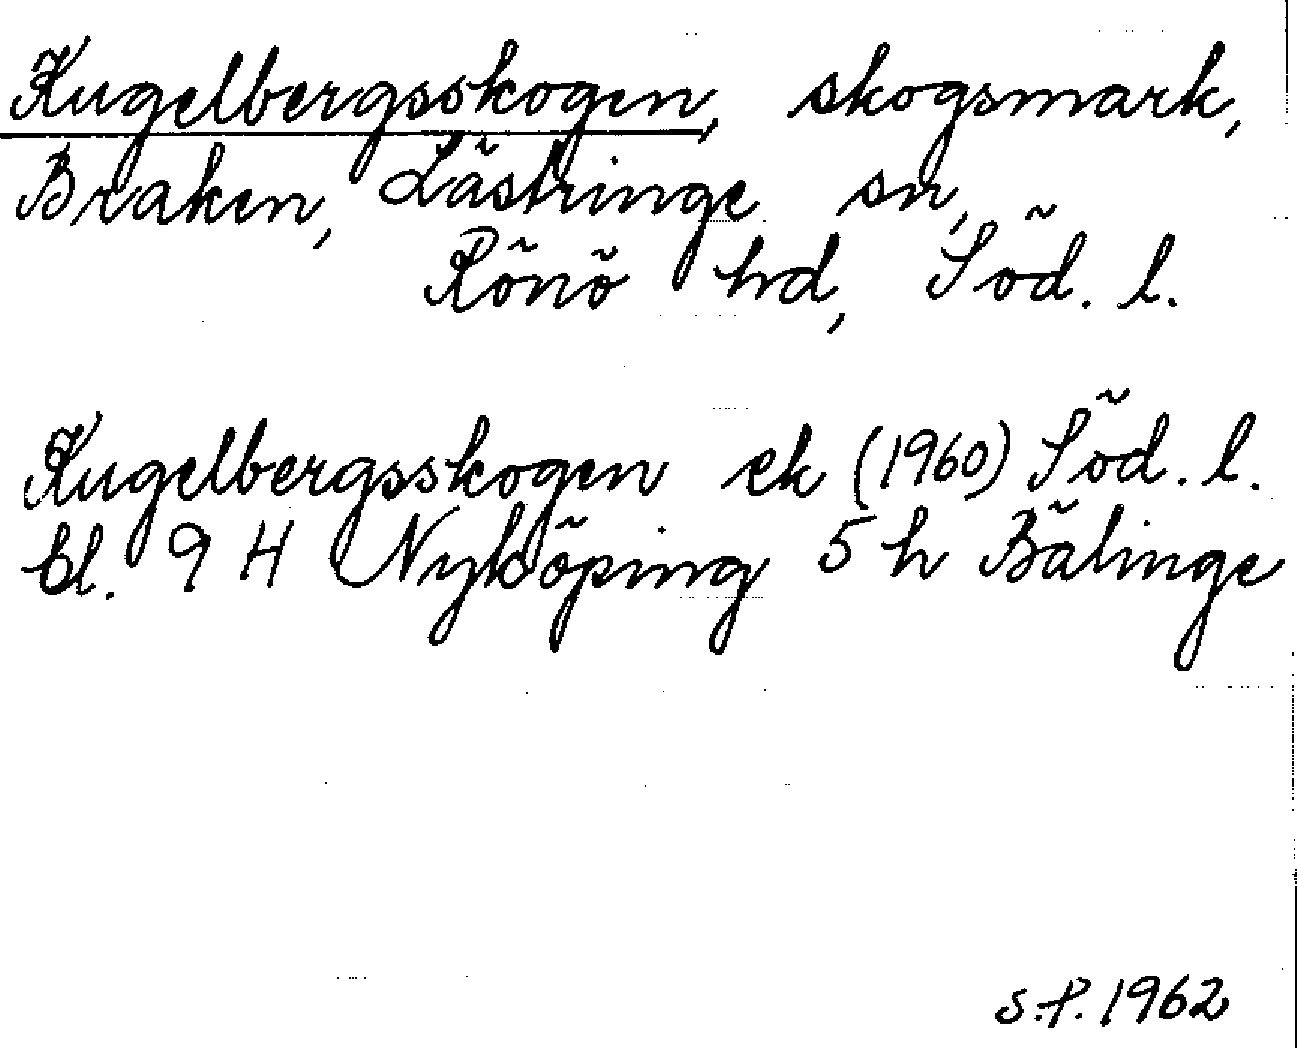 Kugelbergsskogen, skogsmark,
Braken, Lästringe sn,
Rönö hd, Söd. l.
Kugelbergsskogen ek (1960) Söd. l.
bl. 9 H Nyköping 5 h Bälinge
S.P. 1962